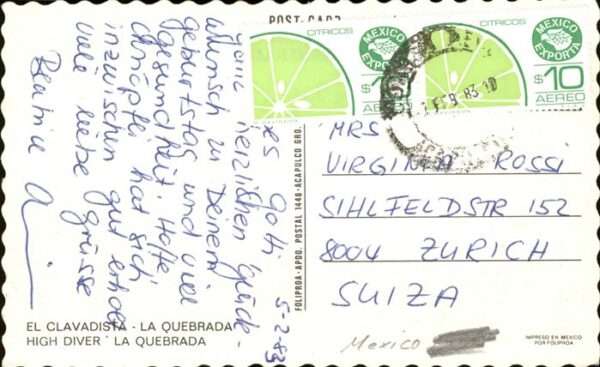 POST CARD
CITRICOS
MEXICO
EXPORTA
$10
AEREO
CITRICOS
MEXICO
EXPORTA
$10
AEREO
FEB 83
5-2-83
herzlichen Glück-
wunsch zu Deinem
Geburtstag und viel
Gesundheit. Hoffe
hat sich
inzwischen gut erholt
viele liebe grüsse
Beatrice
FOLIPROA-APDO. POSTAL 1446-ACAPULCO GRO.
MRS
VIRGINIA ROSSI
SIHLFELDSTR 152
8004 ZURICH
SUIZA
Mexico
EL CLAVADISTA - LA QUEBRADA
HIGH DIVER LA QUEBRADA
IMPRESO EN MEXICO
POR FOLIPROA